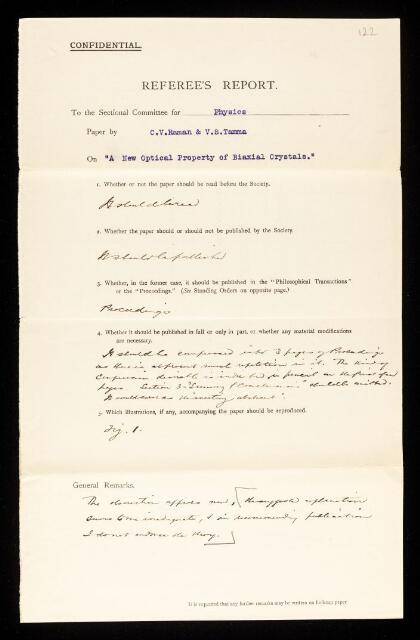 122
CONFIDENTIAL.
REFEREE'S REPORT.
To the Sectional Committee for Physics
Paper by C.V.Raman & V.S.Tamma
On "A New Optical Property of Biaxial Crystals."
1. Whether or not the paper should be read before the Society.
It should be read
2. Whether the paper should or should not be published by the Society.
It should be published
3. Whether, in the former case, it should be published in the "Philosophical Transactions"
or the "Proceedings." (See Standing Orders on opposite page.)
Proceedings
4. Whether it should be published in full or only in part, or whether any material modifications
are necessary.
It should be compressed into 3 pages of Proceedings
as there is at present much repetition in it. The kind of
compression desirable is indicated in pencil on the first few
pages. Section 3 "Summary & Conclusions" should be omitted.
It would serve as the
5. Which illustrations, if any, accompanying the paper should be reproduced.
Fig. 1.
General Remarks.
The observation appears new, [the suggested explanation
seems to me inadequate, & in recommending publication
I do not endorse the theory.]
It is requested that any further remarks may be written on foolscap paper